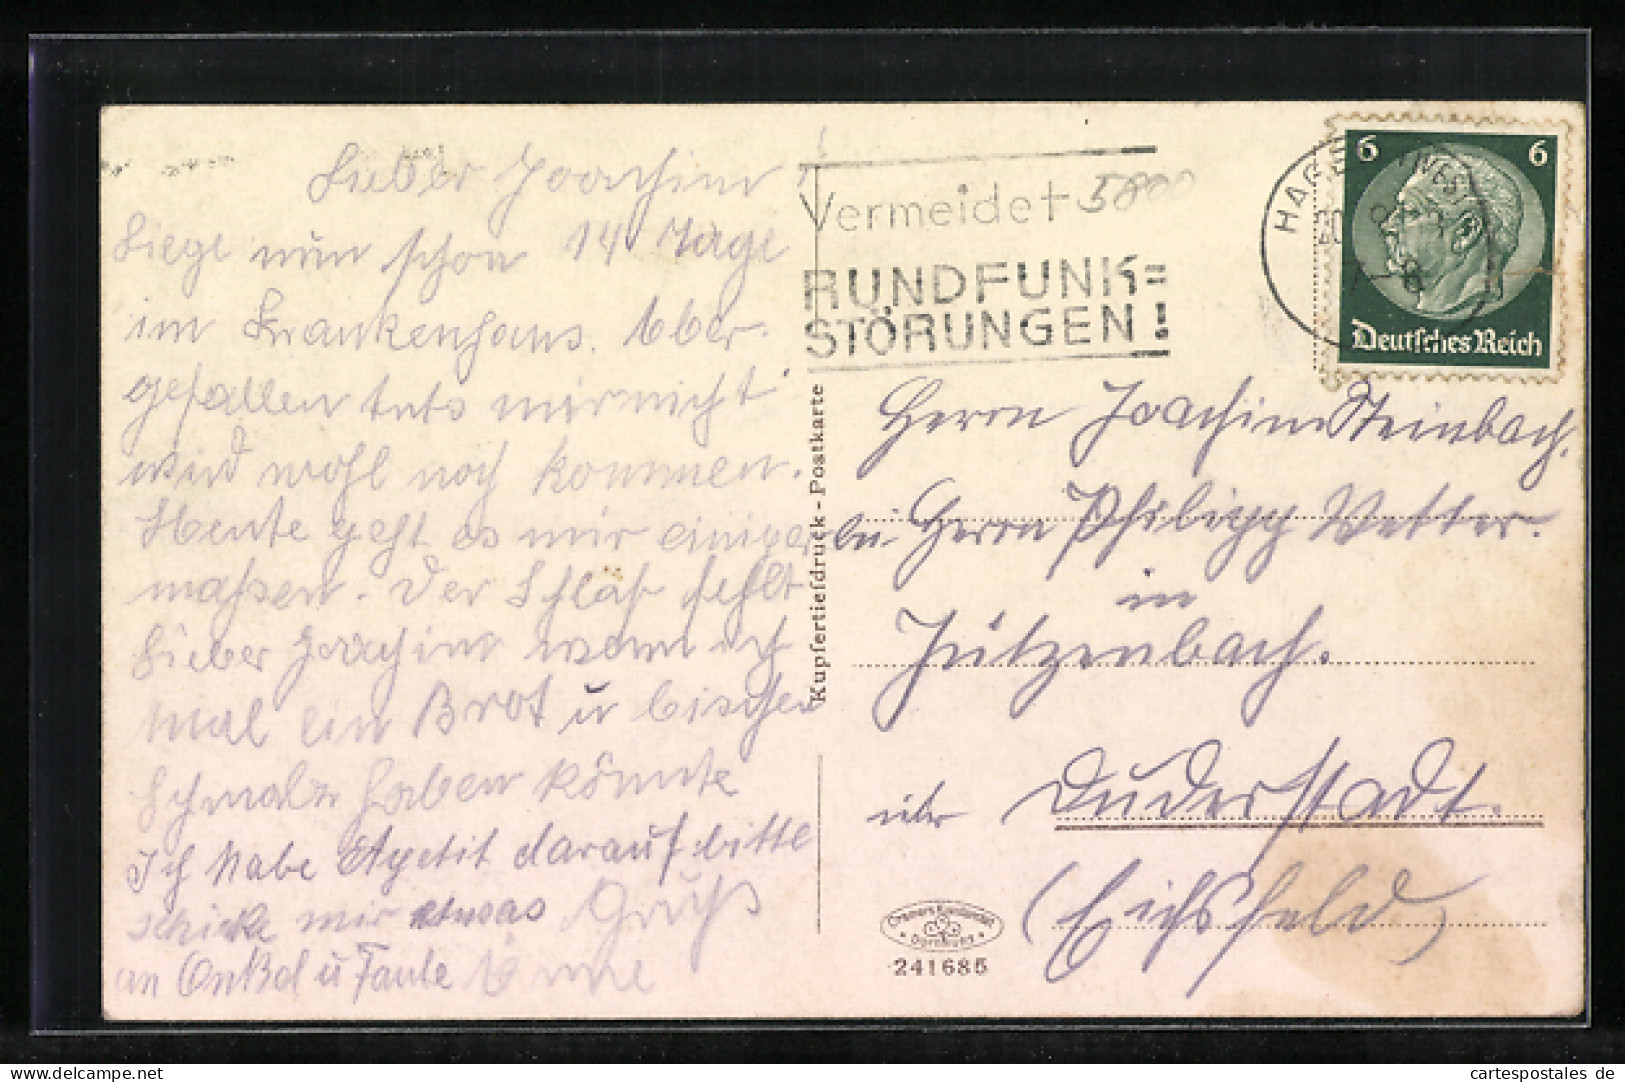 Lieber Joachim!
Liege nun schon 14 Tage
im Krankenhaus. Aber
gefallen tuts mir nicht
wird wohl noch kommen.
Heute geht es mir einiger
maßen. Der Schlaf fehlt
Lieber Joachim wenn ich
mal ein Brot u bischen
Schmalz haben könnte
Ich habe Apetit darauf bitte
schicke mir etwas Gruß
an Onkel u Tante
Vermeidet 5800
RUNDFUNK=
STÖRUNGEN!
HAGEN (WESTF
6 6
Deutsches Reich
Kupfertiefdruck - Postkarte
Herrn Joachim Steinbach.
bei Herrn Philipp Vetter.
in
Jützenbach.
über Duderstadt.
(Eichsfeld)
Cramers Kunstanstalt
Dortmund
241685
https://www.cartespostales.de
cartespostales de